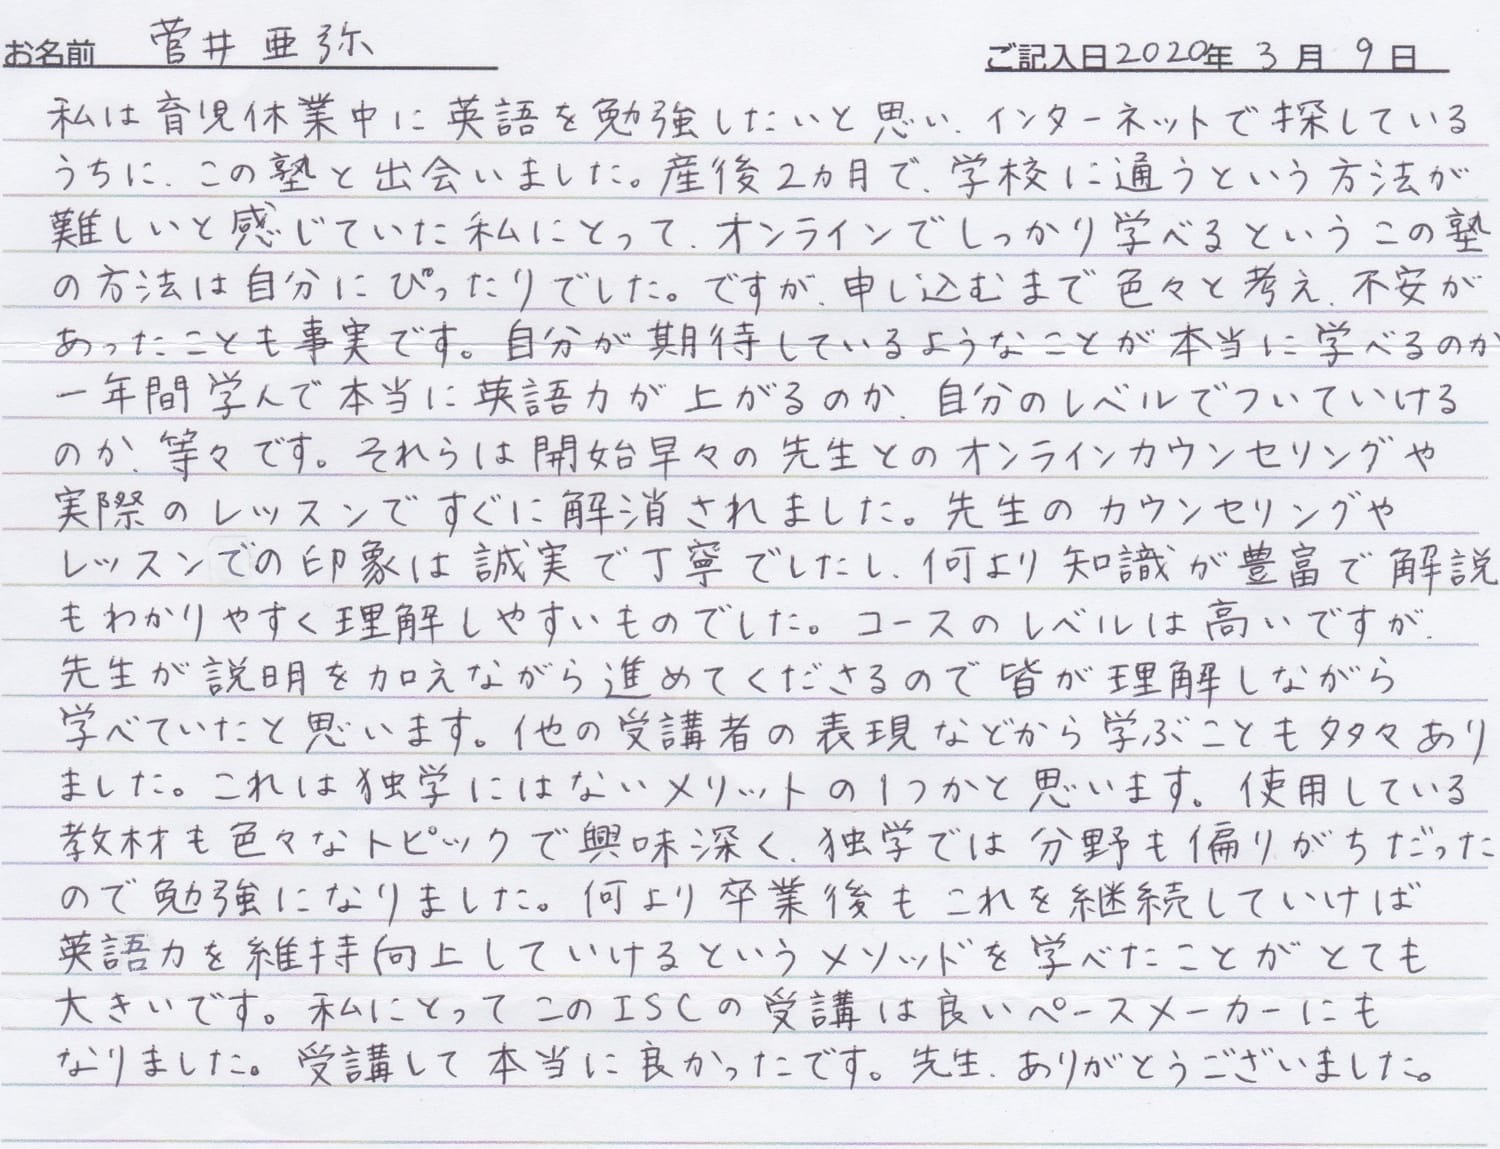 お名前 菅井 亜弥 ご記入日2020年 3月 9日
私は育児休業中に英語を勉強したいと思い、インターネットで探している
うちに、この塾と出会いました。産後2ヵ月で、学校に通うという方法が
難しいと感じていた私にとって、オンラインでしっかり学べるというこの塾
の方法は自分にぴったりでした。ですが、申し込むまで色々と考え、不安が
あったことも事実です。自分が期待しているようなことが本当に学べるのか
一年間学んで本当に英語力が上がるのか、自分のレベルでついていける
のか、等々です。それらは開始早々の先生とのオンラインカウンセリングや
実際のレッスンですぐに解消されました。先生のカウンセリングや
レッスンでの印象は誠実で丁寧でしたし、何より知識が豊富で解説
もわかりやすく理解しやすいものでした。コースのレベルは高いですが、
先生が説明を加えながら進めてくださるので皆が理解しながら
学べていたと思います。他の受講者の表現などから学ぶことも多々あり
ました。これは独学にはないメリットの1つかと思います。使用している
教材も色々なトピックで興味深く、独学では分野も偏りがちだった
ので勉強になりました。何より卒業後もこれを継続していけば
英語力を維持向上していけるというメソッドを学べたことがとても
大きいです。私にとってこのISCの受講は良いペースメーカーにも
なりました。受講して本当に良かったです。先生、ありがとうございました。